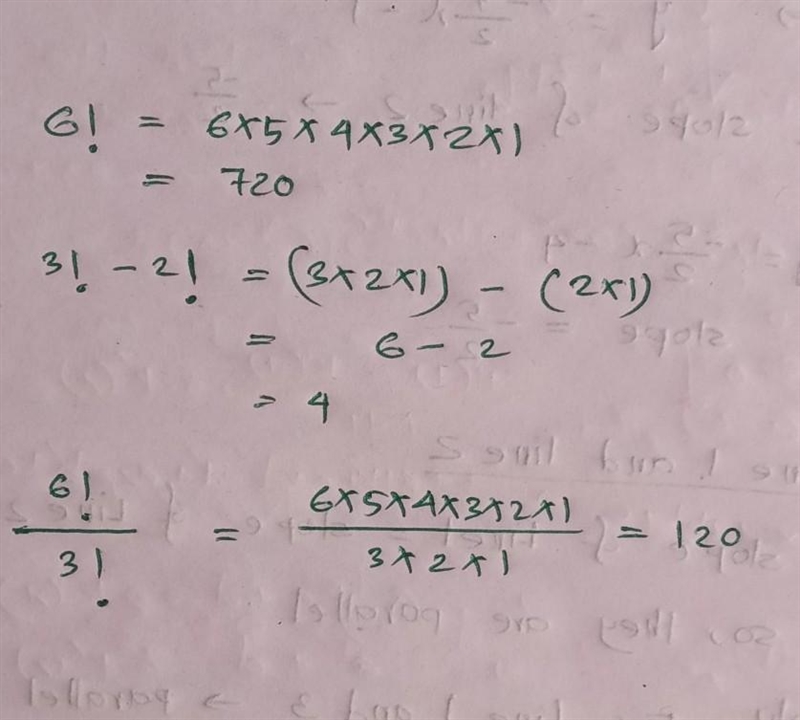 6! = 6×5×4×3×2×1
= 720
3! - 2! = (3×2×1) - (2×1)
= 6 - 2
= 4
6!/3! = 6×5×4×3×2×1/3×2×1 = 120